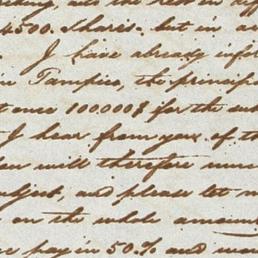 and the rest in
4500. Shares. but in
I have already
in Tampico, the princip
at once 100000$ for the
I hear from you of th
will therefore
and please let
on the whole amount
pay in 50.% and